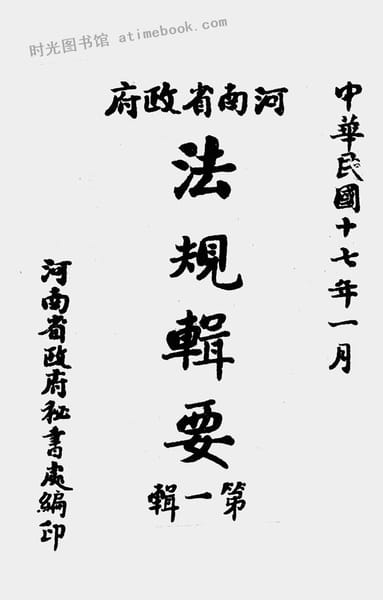 时光图书馆 atimebook.com
中華民國十七年一月
河南省政府
法規輯要
第一輯
河南省政府秘書處編印